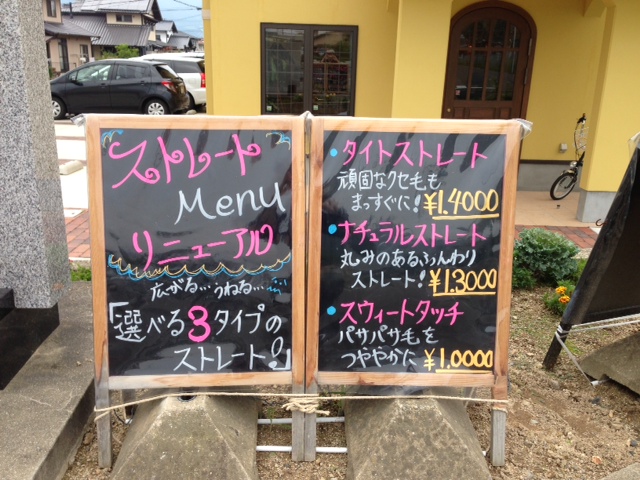 ストレート
Menu
リニューアル
広がる…うねる…
「選べる3タイプの
ストレート!」
・タイトストレート
頑固なクセ毛も
まっすぐに! ¥1.4000
・ナチュラルストレート
丸みのあるふんわり
ストレート! ¥1.3000
・スウィートタッチ
パサパサ毛を
つややかに ¥1.0000